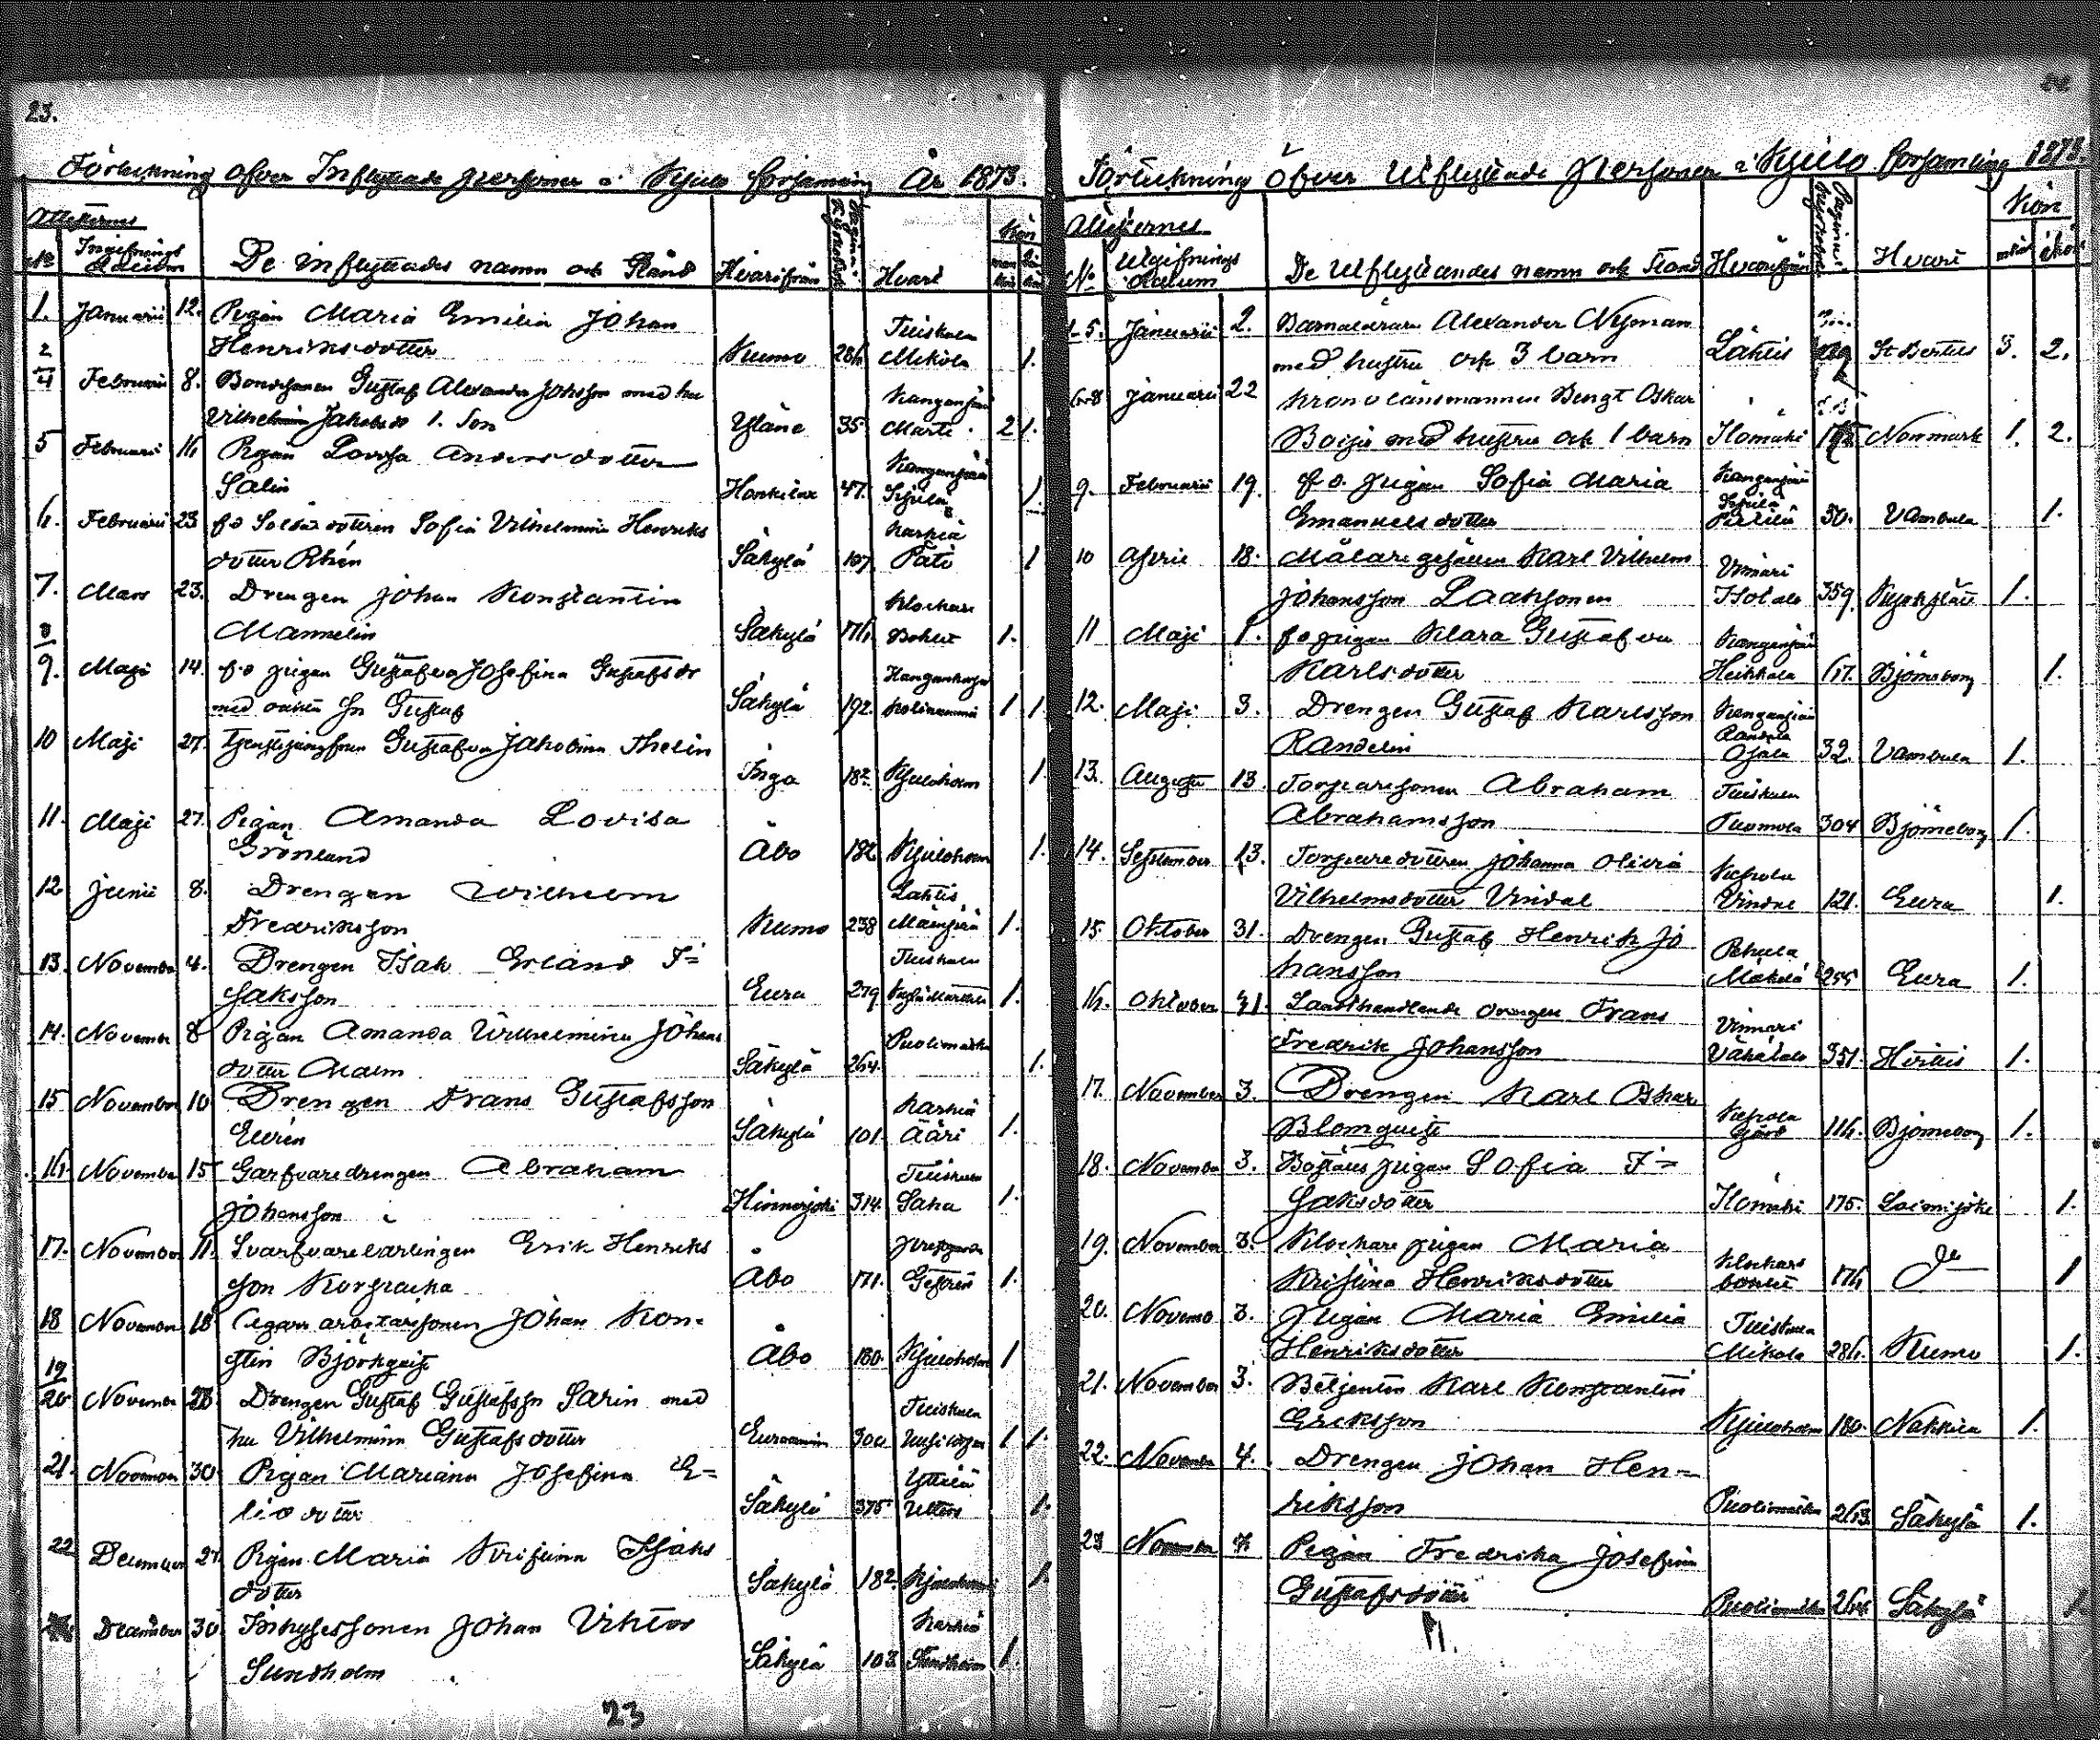 23.
Förtekning öfver Inflyttade personer i Kjulo församling År 1873.
Attesternes
Kön
No Ingifnings datum De inflyttades namn och Stånd Hvarifrån Hvart
1. Januarii 12. Pigan Maria Emilia Johan
Tuiskula
Henriksdotter Kumo 286 Mikola 1.
2
4 Februarii 8. Bondesonen Gustaf Alexander Johansson med hu
Kanganpää
Vilhelmina Jakobsd 1. Son Yläne 35 Marti 2 1.
5 Februarii 16 Pigan Lovisa Andersdotter
Kanganpää
Salin Honkilax 47. 1.
6. Februarii 23 fd Soldatdottren Sofia Vilhelmina Henriks
Karhia
dotter Rhén Säkylä 107 Päti 1
7. Mars 23. Drengen Johan Konstantin
Klockare
Mannelin Säkylä 176 Bohlet 1.
8
9. Maji 14. f.d pigan Gustafva Josefina Gustafsdr
med oäkta Son Gustaf Säkylä 192. 1 1.
10 Maji 27. Gustafva Jakobina Thelin
Inga 182 Kjuloholm 1.
11. Maji 27. Pigan Amanda Lovisa
Grönlund Åbo 182 Kjuloholm 1.
12 Junii 8. Drengen Wilhelm
Lahtis
Fredriksson Kumo 238 Mäenpää 1.
13. November 4. Drengen Isak Erland I=
Tuiskula
saksson Eura 279 1.
14. November 8 Pigan Amanda Wilhelmina Johans
Puolimatka
dotter Malm Säkylä 264. 1.
15 November 10 Drengen Frans Gustafsson
Karhia
Eurén Säkylä 101 Ääri 1.
16 November 15 Garfvaredrengen Abraham
Tuiskula
Johansson Hinnerjoki 314. Saha 1.
17. November 11. Svarfvarelärlingen Erik Henriks
son Korpraika Åbo 171. 1.
18 November 18 Cigarr arbetarsonen Johan Kon-
stin Björkqvist Åbo 180. Kjuloholm 1
19
20 November 28 Drengen Gustaf Gustafsson Sarin med
Tuiskula
hu Vilhelmina Gustafsdotter Euraåminne 300 1 1.
21. November 30 Pigan Mariana Josefina E-
Yttilä
liædotter Säkylä 375 Uttos 1.
22 December 27. Pigan Maria Kristina Isaks
dotter Säkylä 182. Kjuloholm 1.
December 30 Inhysessonen Johan Viktor
Karhia
Sundholm Säkylä 103. Sundholm 1.
23
Förtekning öfver Utflyttade Personer i Kjulo församling 1873.
Attesternes
Kön
No. Utgifnings datum De Utflyttandes namn och Stånd Hvarifrån Hvart
1-5. Januarii 2. Barnalärare Alexander Nyman
med hustru och 3 barn Lahtis St Bertils 3. 2.
6-8 Januarii 22 Kronolänsmannen Bengt Oskar
Boije med hustru och 1 barn Ilomäki 175 Normark 1. 2.
9. Februarii 19. f.d. pigan Sofia Maria
Kanganpää
Emanuelsdotter 30. Vambula 1.
10 April 18. Målaregesällen Karl Vilhelm
Vinnari
Johansson Laaksonen Isotalo 359. 1.
11 Maji 1. f.d pigan Klara Gustafva
Kanganpää
Karlsdotter Heikkala 67. Björneborg 1.
12. Maji 3. Drengen Gustaf Karlsson
Kanganpää
Randelin Ojala 32. Vambula 1.
13. Augusti 13. Torparesonen Abraham
Tuiskula
Abrahamsson Tuomola 304 Björneborg 1.
14. September 13. Torparedottren Johanna Olivia
Kepola
Vilhelmsdotter Vindal Vindal 121. Eura 1.
15. Oktober 31. Drengen Gustaf Henrik Jo
Pehula
hansson Mäkelä 255 Eura 1.
16. Oktober 31. Landthandlande drengen Frans
Vinnari
Fredrik Johansson Vähätalo 351. Hvittis 1.
17. November 3. Drengen Karl Oskar
Kepola
Blomqvist gård 116. Björneborg 1.
18. November 3. Boställs pigan Sofia I=
saksdotter Ilomäki 175. Loimijoki 1.
19. November 3. Klockare pigan Maria
Klockars
Kristina Henriksdotter bohlet 176 1
20. Novemb 3. Pigan Maria Emilia
Tuiskula
Henriksdotter Mikola 286. Kumo 1.
21. November 3. Betjenten Karl Konstantin
Eriksson Kjuloholm 180. Nakkila 1.
22. November 4. Drengen Johan Hen-
riksson Puolimatka 263 Säkylä 1.
23 November Pigan Fredrika Josefina
Gustafsdotter Puolimatka 264 Säkylä 1